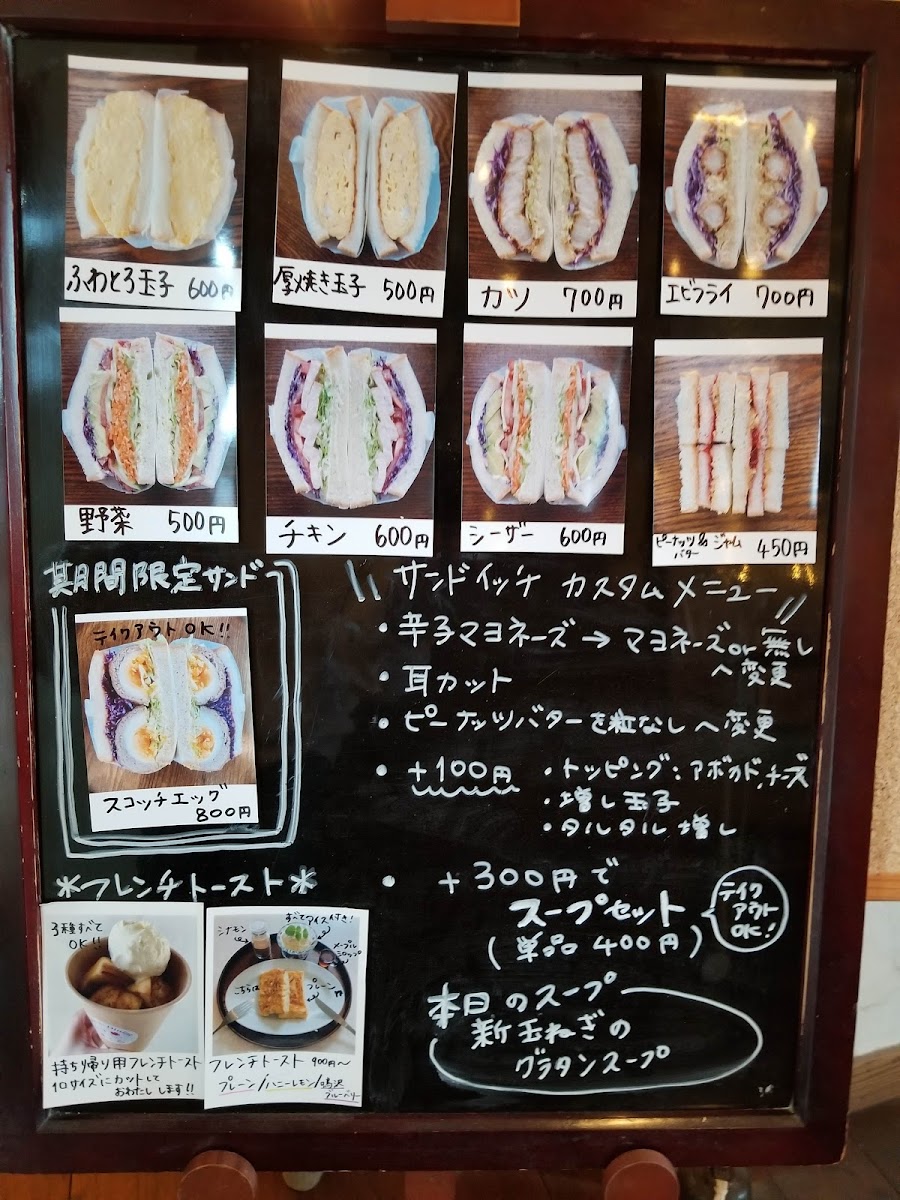 ふわとろ玉子 600円
厚焼き玉子 500円
カツ 700円
エビフライ 700円
野菜 500円
チキン 600円
シーザー 600円
ピーナッツ& ジャム
バター 450円
期間限定サンド
テイクアウトOK!!
スコッチエッグ
800円
サンドイッチ カスタムメニュー
・辛子マヨネーズ→マヨネーズor無し
へ変更
・耳カット
・ピーナッツバターを粒なしへ変更
・+100円 ・トッピング:アボカド,チーズ
・増し玉子
・タルタル増し
*フレンチトースト*
3種すべて
OK!!
持ち帰り用フレンチトースト
10サイズにカットして
おわたしします!!
すべてアイス付き!
シナモン
メープル
シロップ
こちらは
プレーン
フレンチトースト 900円〜
プレーン/ハニーレモン/
ブルーベリー
・+300円で
スープセット
(単品 400円)
テイク
アウト
OK!
本日のスープ
新玉ねぎの
グラタンスープ